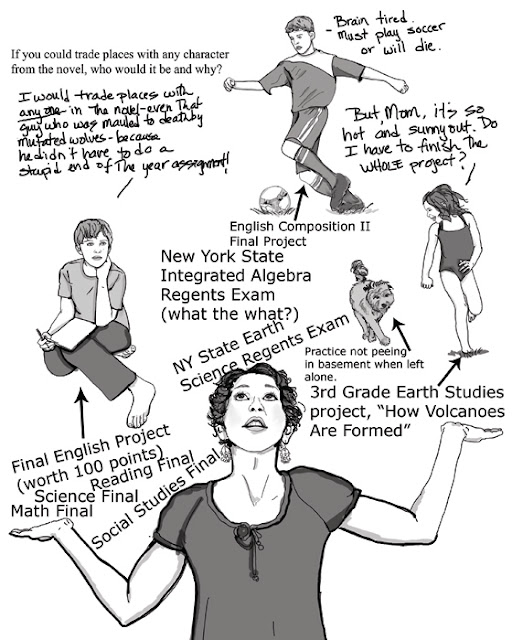 If you could trade places with any character
from the novel, who would it be and why?
I would trade places with
any one in the novel-even that
guy who was mauled to death by
mutated wolves - because
he didn't have to do a
stupid end of the year assignment!
- Brain tired.
Must play soccer
or will die.
But Mom, it's so
hot and sunny out. Do
I have to finish the
WHOLE project?
English Composition II
Final Project
New York State
Integrated Algebra
Regents Exam
(what the what?)
NY State Earth
Science Regents Exam
Practice not peeing
in basement when left
alone.
3rd Grade Earth Studies
project, "How Volcanoes
Are Formed"
Final English Project
(worth 100 points)
Reading Final
Science Final
Math Final
Social Studies Final